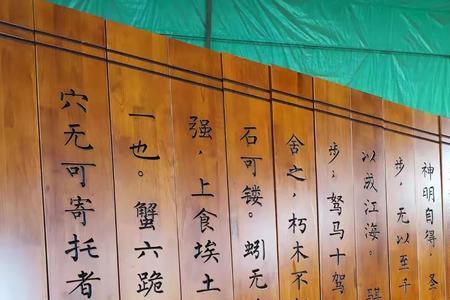 神明自得，圣
步，无以至千
以成江海。骐
步；驽马十驾
舍之，朽木不
石可镂。蚓无
强，上食埃土
一也。蟹六跪
穴无可寄托者